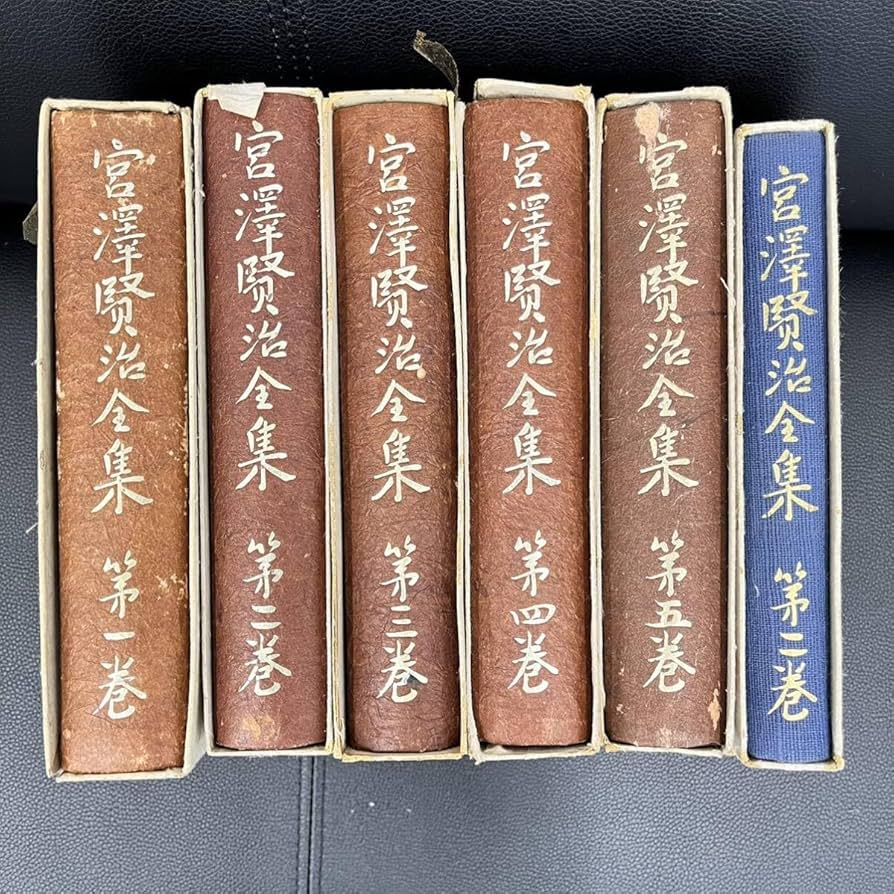 宮澤賢治全集 第一巻
宮澤賢治全集 第二巻
宮澤賢治全集 第三巻
宮澤賢治全集 第四巻
宮澤賢治全集 第五巻
宮澤賢治全集 第二巻